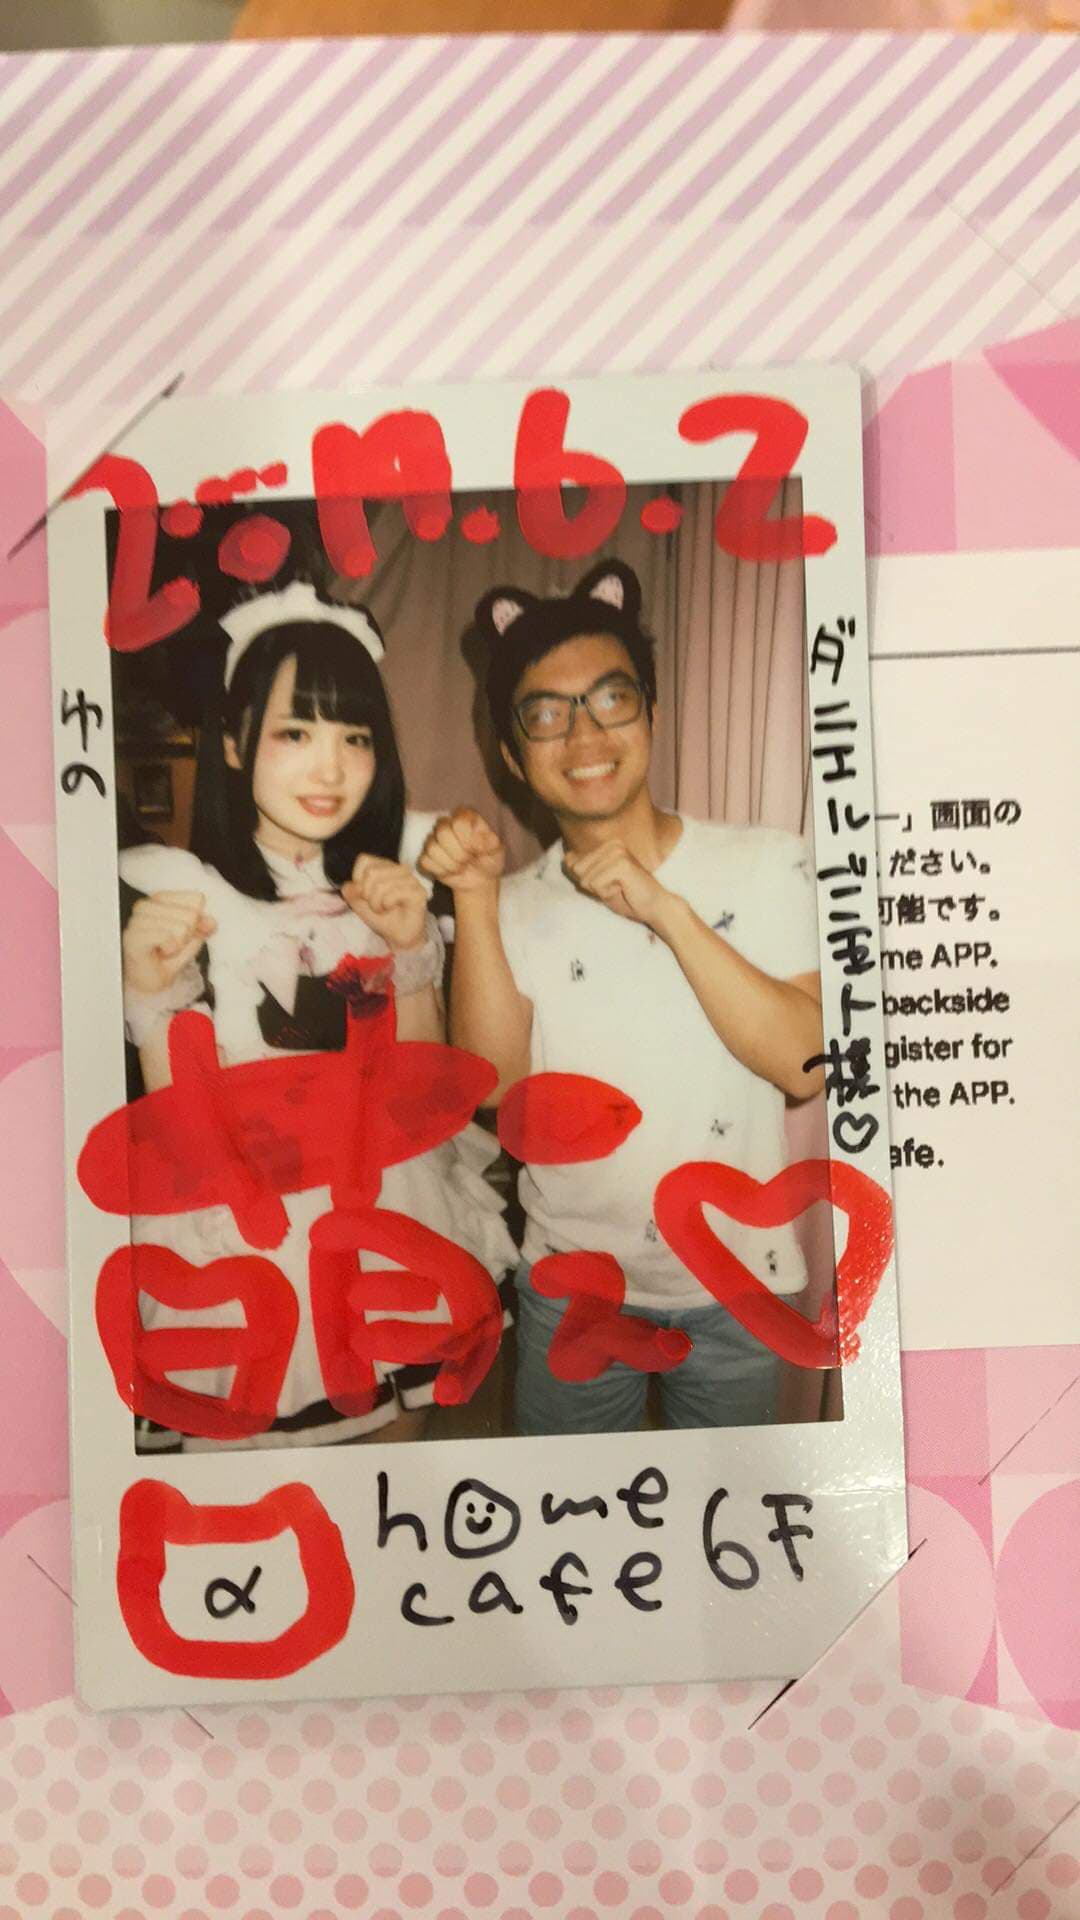 2019.6.2
ゆの
ダニエルビンセント様♡
萌え♡
α
home
cafe 6F
」画面の
ださい。
可能です。
me APP.
backside
gister for
the APP.
afe.